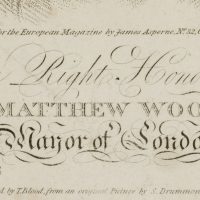 for the European Magazine by James Asperne, No. 32, C
Right Hono
MATTHEW WOO
Mayor of Londo
d by T. Blood, from an original Picture by S. Drummon